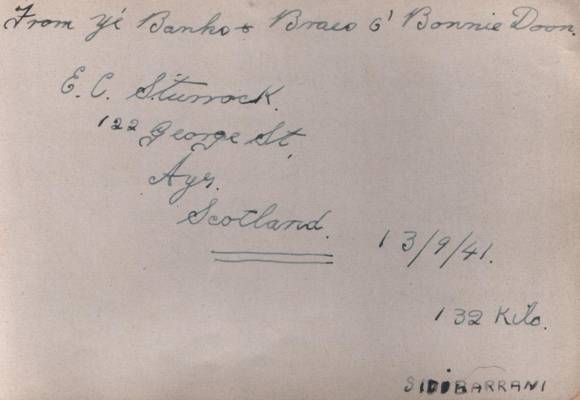 From yé Banks & Braes o' Bonnie Doon.
E. C. Sturrock.
122 George St,
Ayr.
Scotland.
13/9/41.
132 Kilo.
SIDIBARRANI